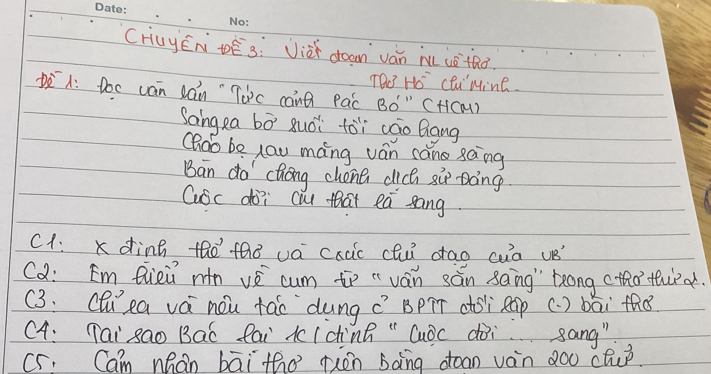 Date: No:
CHUYÊN ĐỀ 3: Viết đoạn văn NL về thơ.
Thơ Hồ Chí Minh.
Đề 1: Đọc văn bản "Tức cảnh Pác Bó" (HCM)
Sáng ra bờ suối tối vào hang
Cháo bẹ rau măng vẫn sẵn sàng
Bàn đá chông chênh dịch sử Đảng
Cuộc đời CM thật là sang.
C1: X định thể thơ và cxúc chủ đạo của VB
C2: Em hiểu ntn về cụm từ "vẫn sẵn sàng" trong c thơ thứ 2.
C3: Chỉ ra và nêu tác dụng c BPTT đối lập (-) bài thơ.
C4: Tại sao Bác lại k( định "Cuộc đời ... sang".
C5: Cảm nhận bài thơ trên bằng đoạn văn 200 chữ.